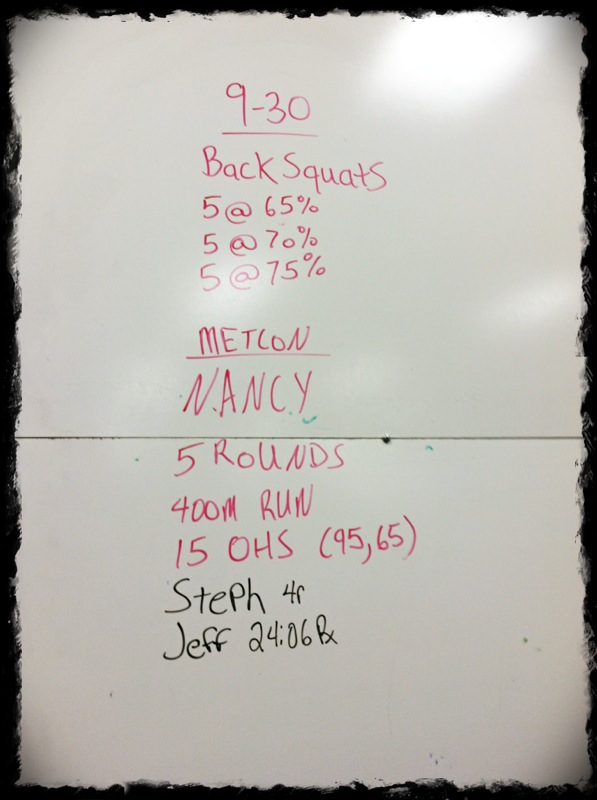 9-30
Back Squats
5 @ 65%
5 @ 70%
5 @ 75%
METCON
NANCY
5 ROUNDS
400m RUN
15 OHS (95,65)
StePh 4r
Jeff 24:06 Rx